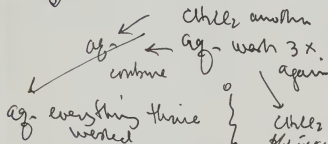 CH2Cl2 another
aq- ← aq- wash 3x
combine again
aq- everything thrice
washed
CH2Cl2